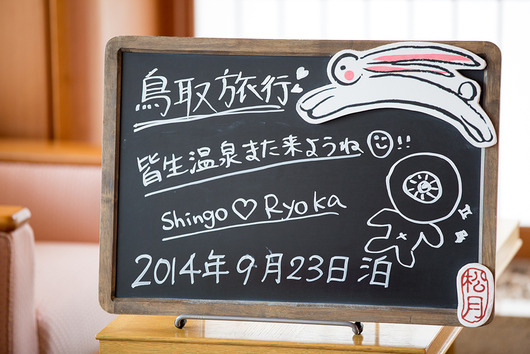 鳥取旅行
皆生温泉また来ようね☺!!
Shingo♡Ryoka
2014年9月23日泊
松月